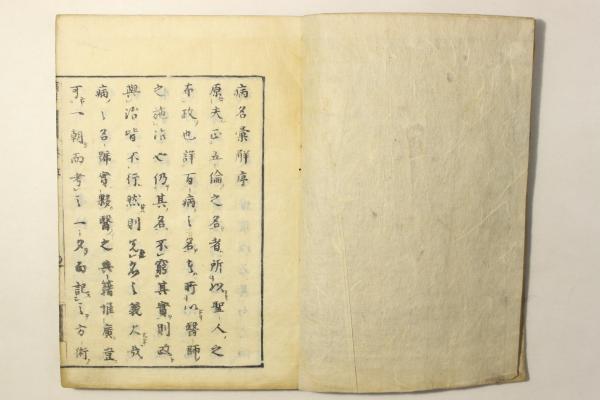 病名彙解序
原夫正五倫之名者所以聖人之
本政也詳百病之名者所以醫師
之施治也仍其名不窮其實則政
與治皆不行然則名之義大哉
病之名號實夥醫之典籍惟廣豈
可一朝而考之一名而記之方術